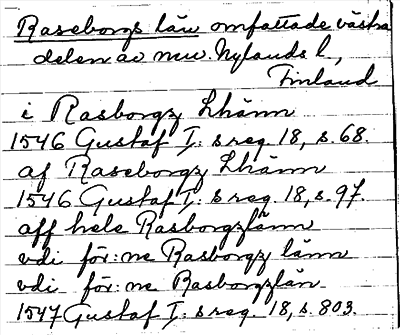 Raseborgs län omfattade västra
delen av nuv. Nylands l.,
Finland
i Rasborgz Lhänn
1546 Gustaf I:s reg. 18, s. 68.
af Raseborgz Lhänn
1546 Gustaf I:s reg. 18, s. 97.
aff hele Rasborgzlänn
vdi för:ne Rasborgz länn
vdi för:ne Rasborgzlän
1547 Gustaf I:s reg. 18, s. 803.